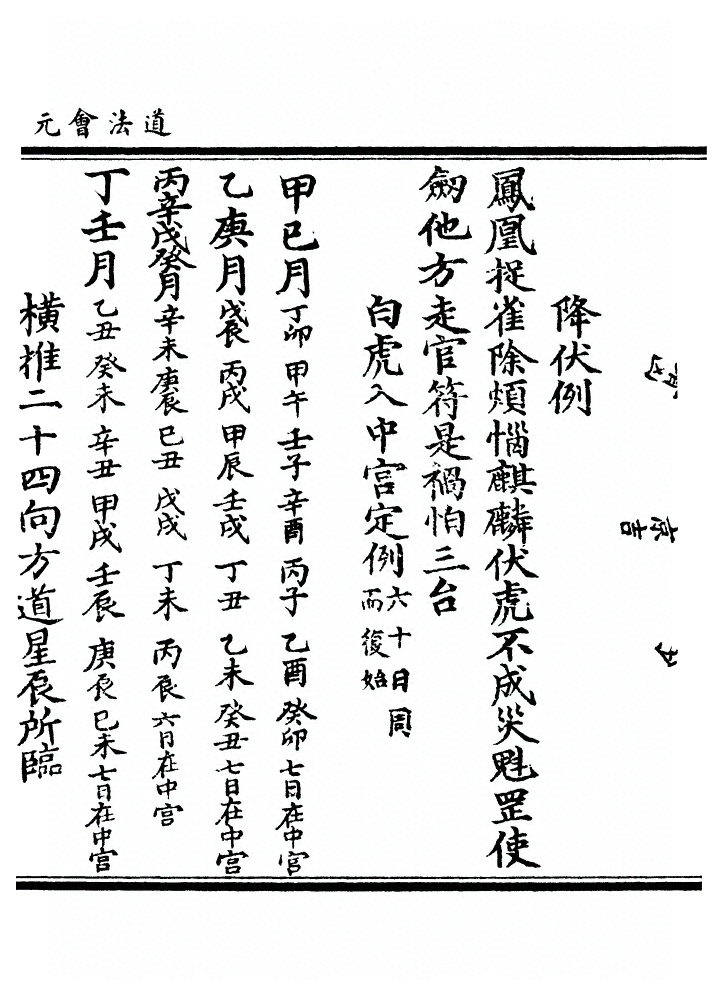 道法會元
京吉
降伏例
鳳凰捉雀除煩惱麒麟伏虎不成災魁罡使
劒他方走官符是禍怕三台
白虎入中宮定例六十日周而復始
甲巳月丁卯甲午壬子辛酉丙子乙酉癸卯七日在中宮
乙庚月戊辰丙戌甲辰壬戌丁丑乙未癸丑七日在中宮
丙辛戊癸月辛未庚辰巳丑戊戌丁未丙辰六日在中宮
丁壬月乙丑癸未辛丑甲戌壬辰庚辰巳未七日在中宮
橫推二十四向方道星辰所臨